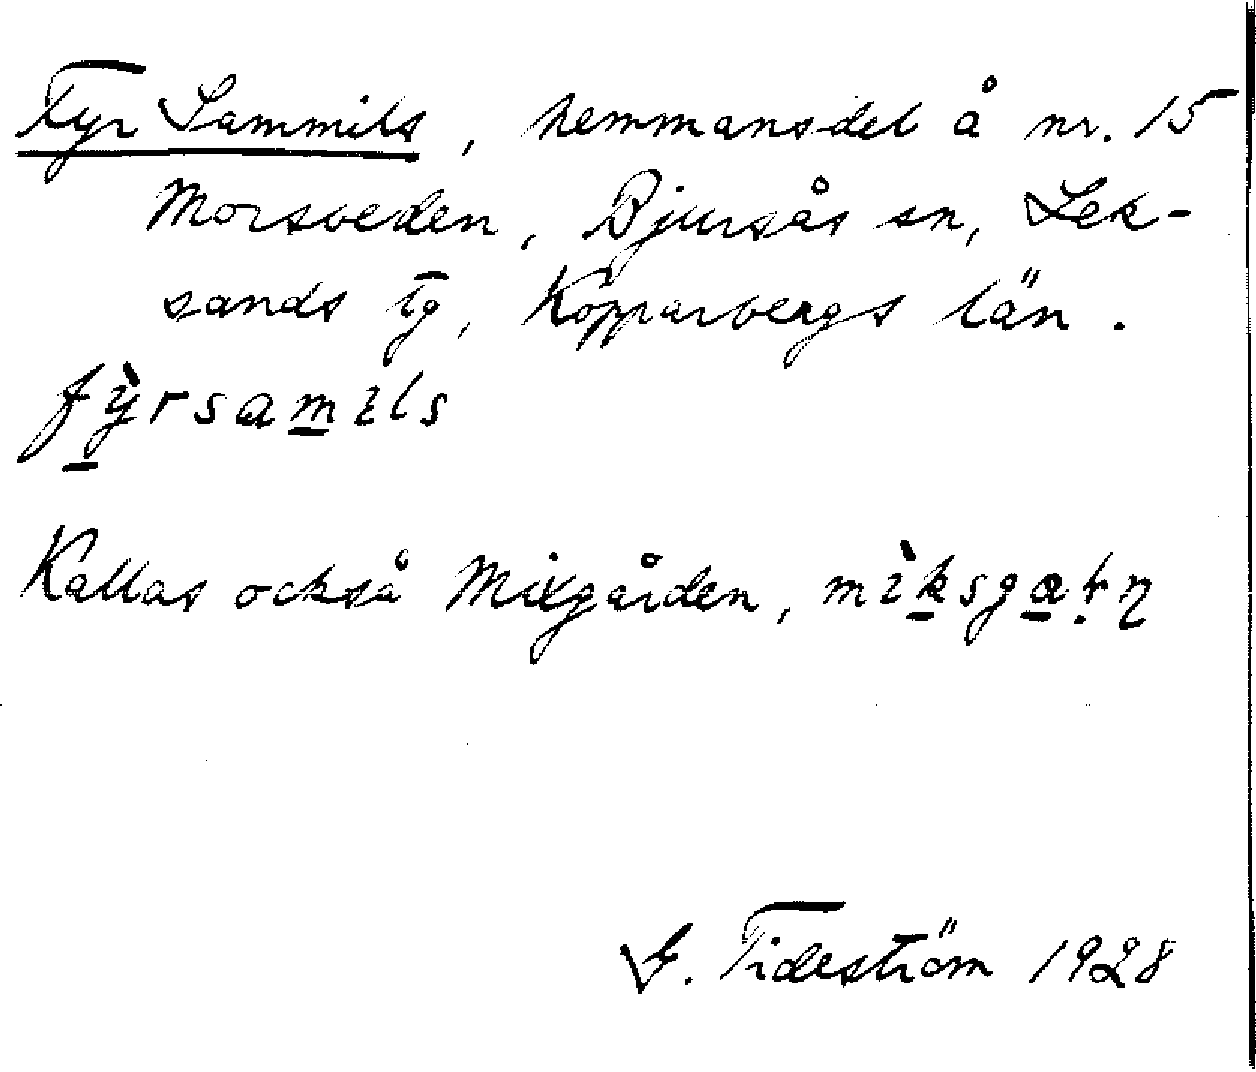 Fyr Sammils, hemmansdel å nr. 15
Morsveden, Bjursås sn, Lek-
sands tg, Kopparbergs län.
fỳ̠rsam̠ɩls
Kallas också Mixgården, mɩ̀k̠sga̠ṛn̥
G. Tideström 1928